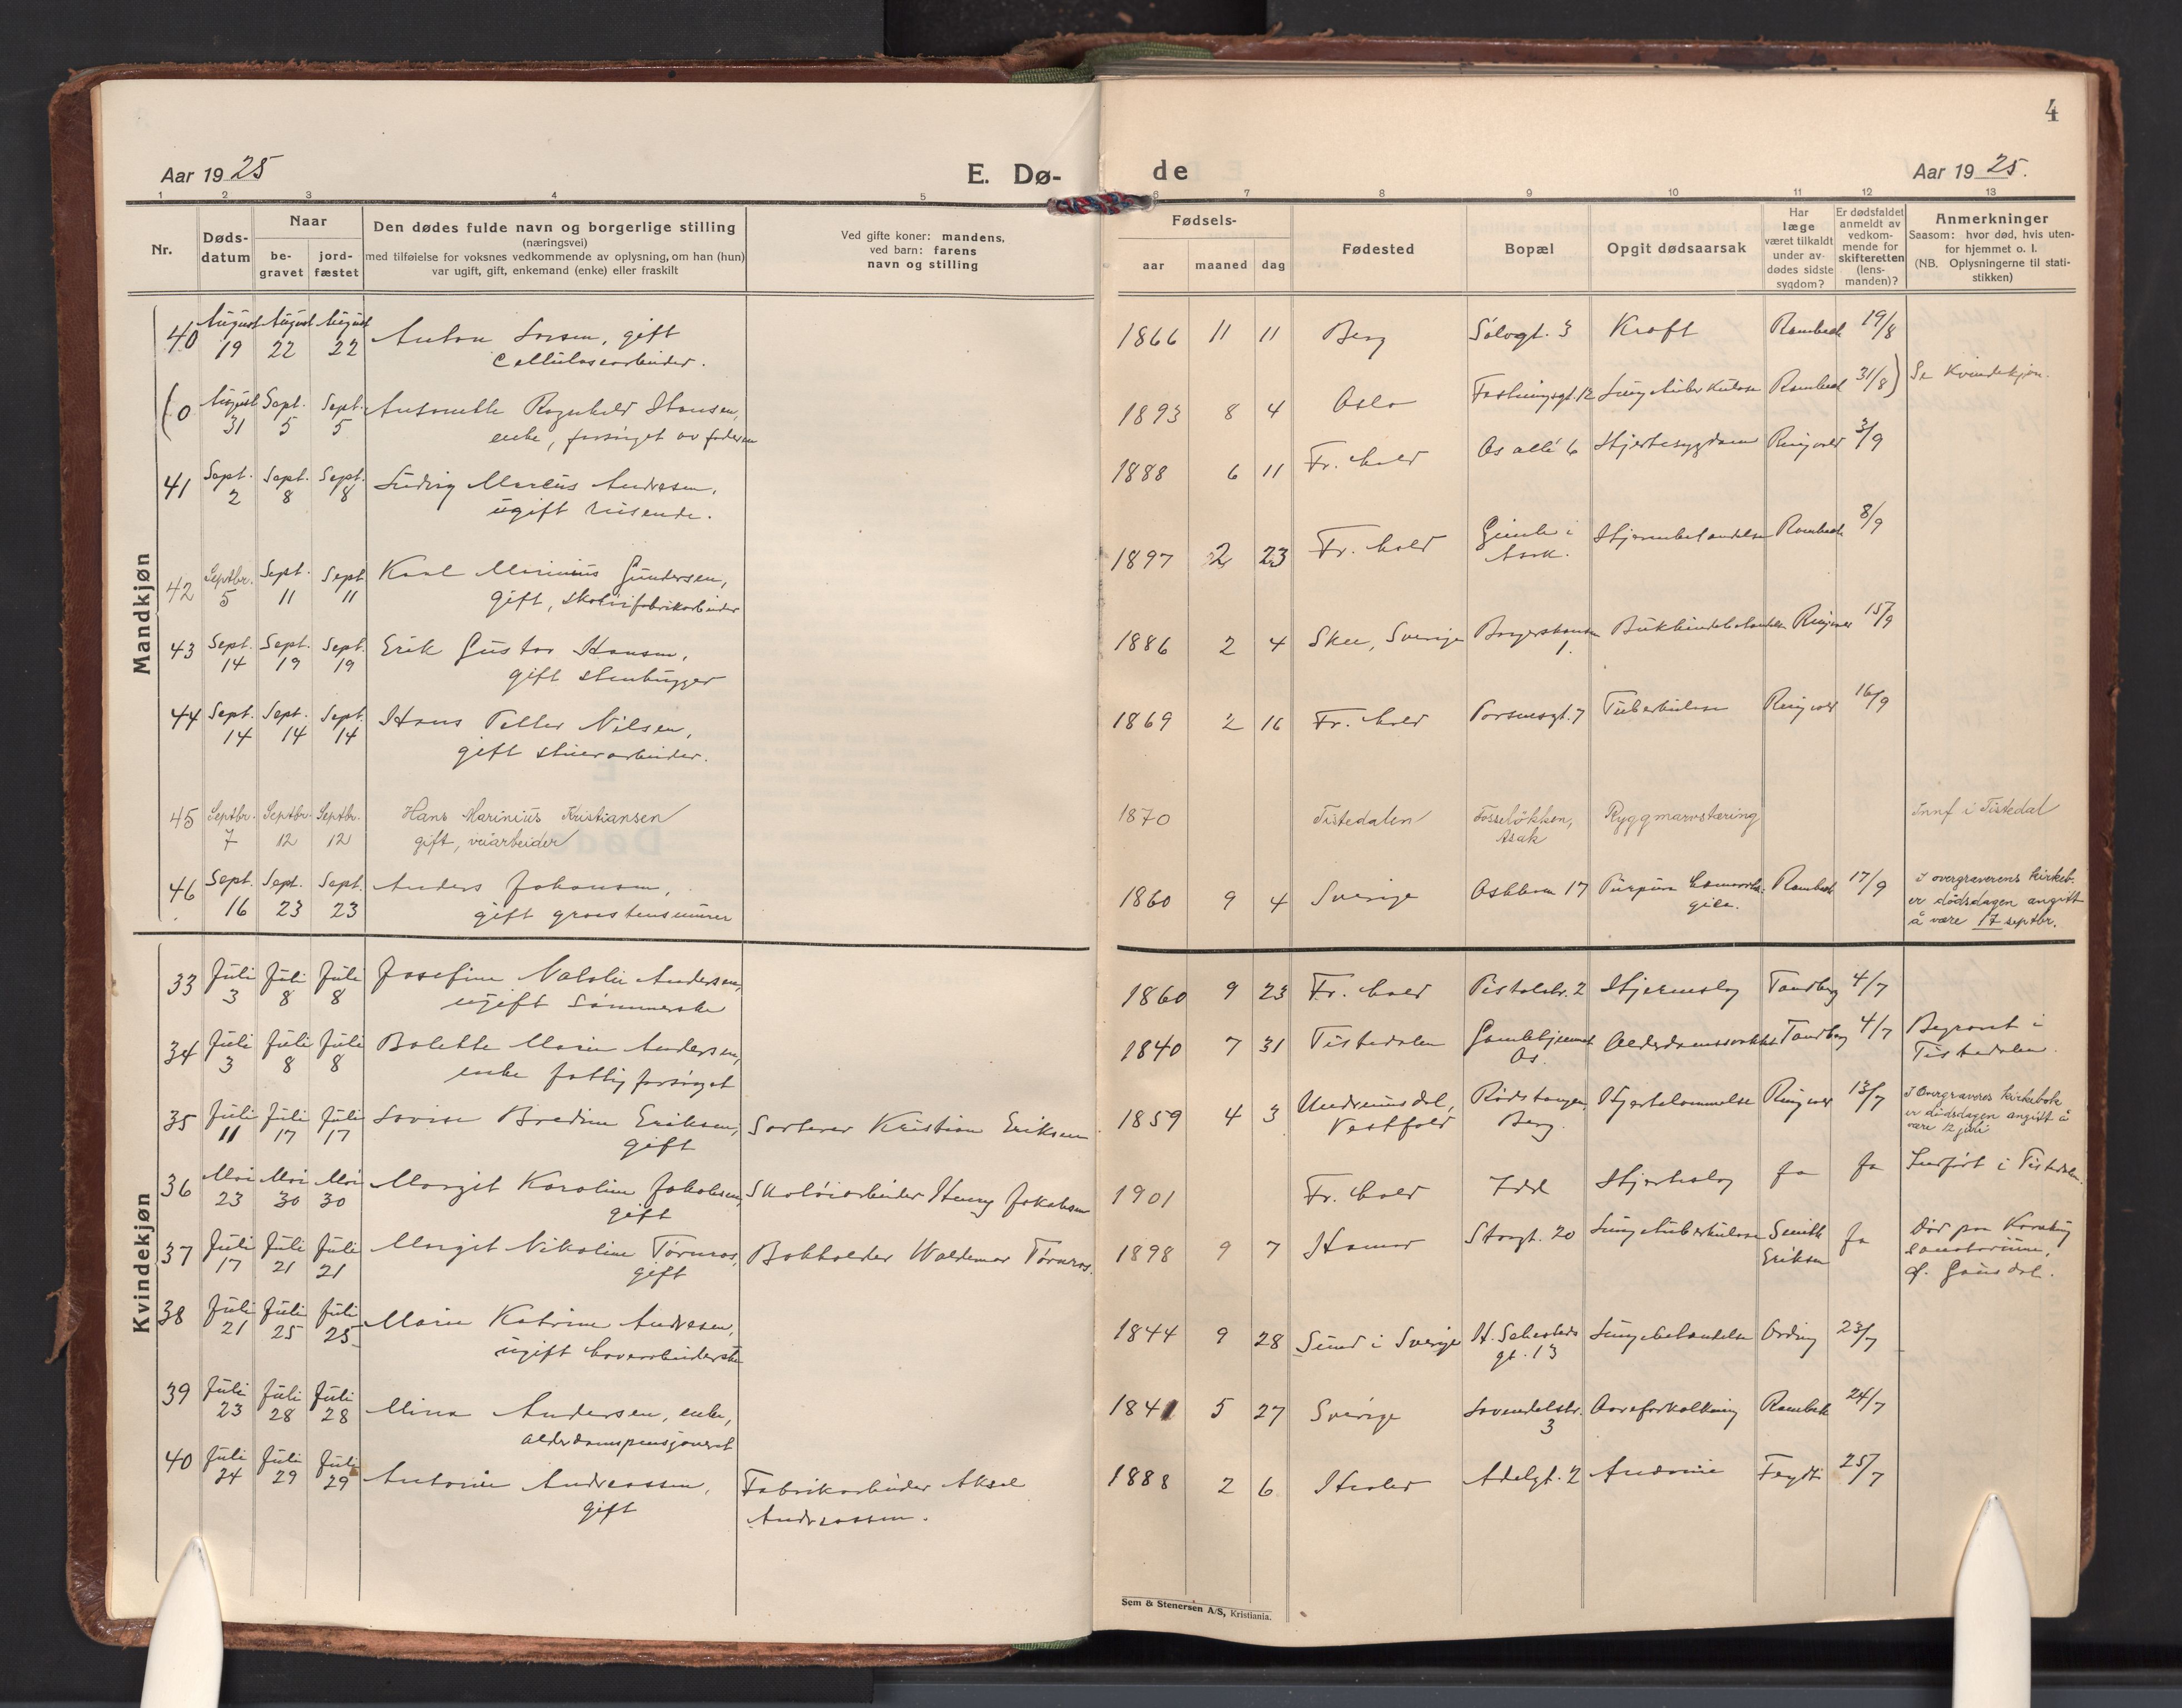 4
Aar 1925
E. Dø-
de
Aar 1925.
1 2 3 4 5 6 7 8 9 10 11 12 13
Nr.
Døds-
datum
Naar
be-
gravet
jord-
fæstet
Den dødes fulde navn og borgerlige stilling
(næringsvei)
med tilføielse for voksnes vedkommende av oplysning, om han (hun)
var ugift, gift, enkemand (enke) eller fraskilt
Ved gifte koner: mandens,
ved barn: farens
navn og stilling
Fødsels-
aar maaned dag
Fødested
Bopæl
Opgit dødsaarsak
Har
læge
været tilkaldt
under av-
dødes sidste
sygdom?
Er dødsfaldet
anmeldt av
vedkom-
mende for
skifteretten
(lens-
manden)?
Anmerkninger
Saasom: hvor død, hvis uten-
for hjemmet o. l.
(NB. Oplysningerne til stati-
stikken)
Mandkjøn
40 August 19 August 22 August 22 Anton Larsen, gift
Cellulosearbeider.
1866 11 11 Berg Sølvgt. 3 Kræft Rambech 19/8
(0 August 31 Sept. 5 Sept. 5 Antonette Ragnhild Hansen,
enke, forsørget av faderen
1893 8 4 Oslo Fæstningsgt. 12 Lungetuberkulose Rambech 31/8) Se Kvindekjøn.
41 Sept. 2 Sept. 8 Sept. 8 Ludvig Marcus Andresen,
ugift reisende.
1888 6 11 Fr.hald Os allé 6 Hjertesygdom Ringvold 3/9
42 Septbr. 5 Sept. 11 Sept 11 Karl Marinius Gundersen,
gift, skotøifabrikarbeider
1897 2 23 Fr.hald Gimle i
Asak.
Hjernebetændelse Rambech 8/9
43 Sept. 14 Sept. 19 Sept. 19 Erik Gustav Hansen,
gift stenhugger
1886 2 4 Skee, Sverige
1.
Bukhindebetændelse Ringvold 15/9
44 Sept. 14 Sept. 14 Sept. 14 Hans Petter Nilsen,
gift
1869 2 16 Fr.hald Tuberkulose Ringvold 16/9
45 Septbr. 7 Septbr. 12 Septbr. 12 Hans Marinius Kristiansen
gift, veiarbeider
1870 Tistedalen Fosseløkken,
Asak
Ryggmarvstæring Innf i Tistedal
46 Sept. 16 Sept. 23 Sept. 23 Anders Johansen,
gift graastensmurer
1860 9 4 Sverige Rambech 17/9
I overgraverens kirkeb.
er dødsdagen angitt
å være 17 septbr.
Kvindekjøn
33 Juli 3 Juli 8 Juli 8 Josefine Natalie Andersen,
ugift Sømmerske
1860 9 23 Fr.hald Pistolstr. 2 Hjerneslag Tandberg 4/7
34 Juli 3 Juli 8 Juli 8 Bolette Marie Andersen,
enke fattigforsørget
1840 7 31 Tistedalen Gamlehjemmet
Os.
Alderdomssvakhet Tandberg 4/7 Begravet i
Tistedalen.
35 Juli 11 Juli 17 Juli 17 Lovise Bredine Eriksen,
gift
Sorterer Kristian Eriksen
1859 4 3 Undrumsdal,
Vestfold
Rødstangen,
Berg.
Hjertelammelse Ringvold 13/7
I Overgraveres kirkebok
er dødsdagen angitt å
være 12 juli
36 Mai 23 Mai 30 Mai 30 Margit Karoline Jakobsen,
gift
Skotøiarbeider Henry Jakobsen
1901 Fr.hald Idd Hjerteslag Ja Ja Indført i Tistedalen.
37 Juli 17 Juli 21 Juli 21 Margit Nikoline Tørnros,
gift
Bokholder Waldemar Tørnros.
1898 9 7 Hamar Storgt. 20 Lungetuberkulose Smith
Eriksen
Ja
Død paa Kornhaug
sanatorium,
Ø. Gausdal.
38 Juli 21 Juli 25 Juli 25 Marie Katrine Andresen,
ugift havearbeiderske
1844 9 28 Sund i Sverige H. Sehesteds
gt. 13
Lungebetændelse Ording 23/7
39 Juli 23 Juli 28 Juli 28 Mina Andersen, enke,
alderdomspensjonert
1841 5 27 Sverige
3
Aareforkalkning Rambech 24/7
40 Juli 24 Juli 29 Juli 29 Antonie Andreassen,
gift
Fabrikarbeider Aksel
Andreassen.
1888 2 6 Hvaler Adelgt. 2 Anæmie Feydt 25/7
Sem & Stenersen A/S, Kristiania.